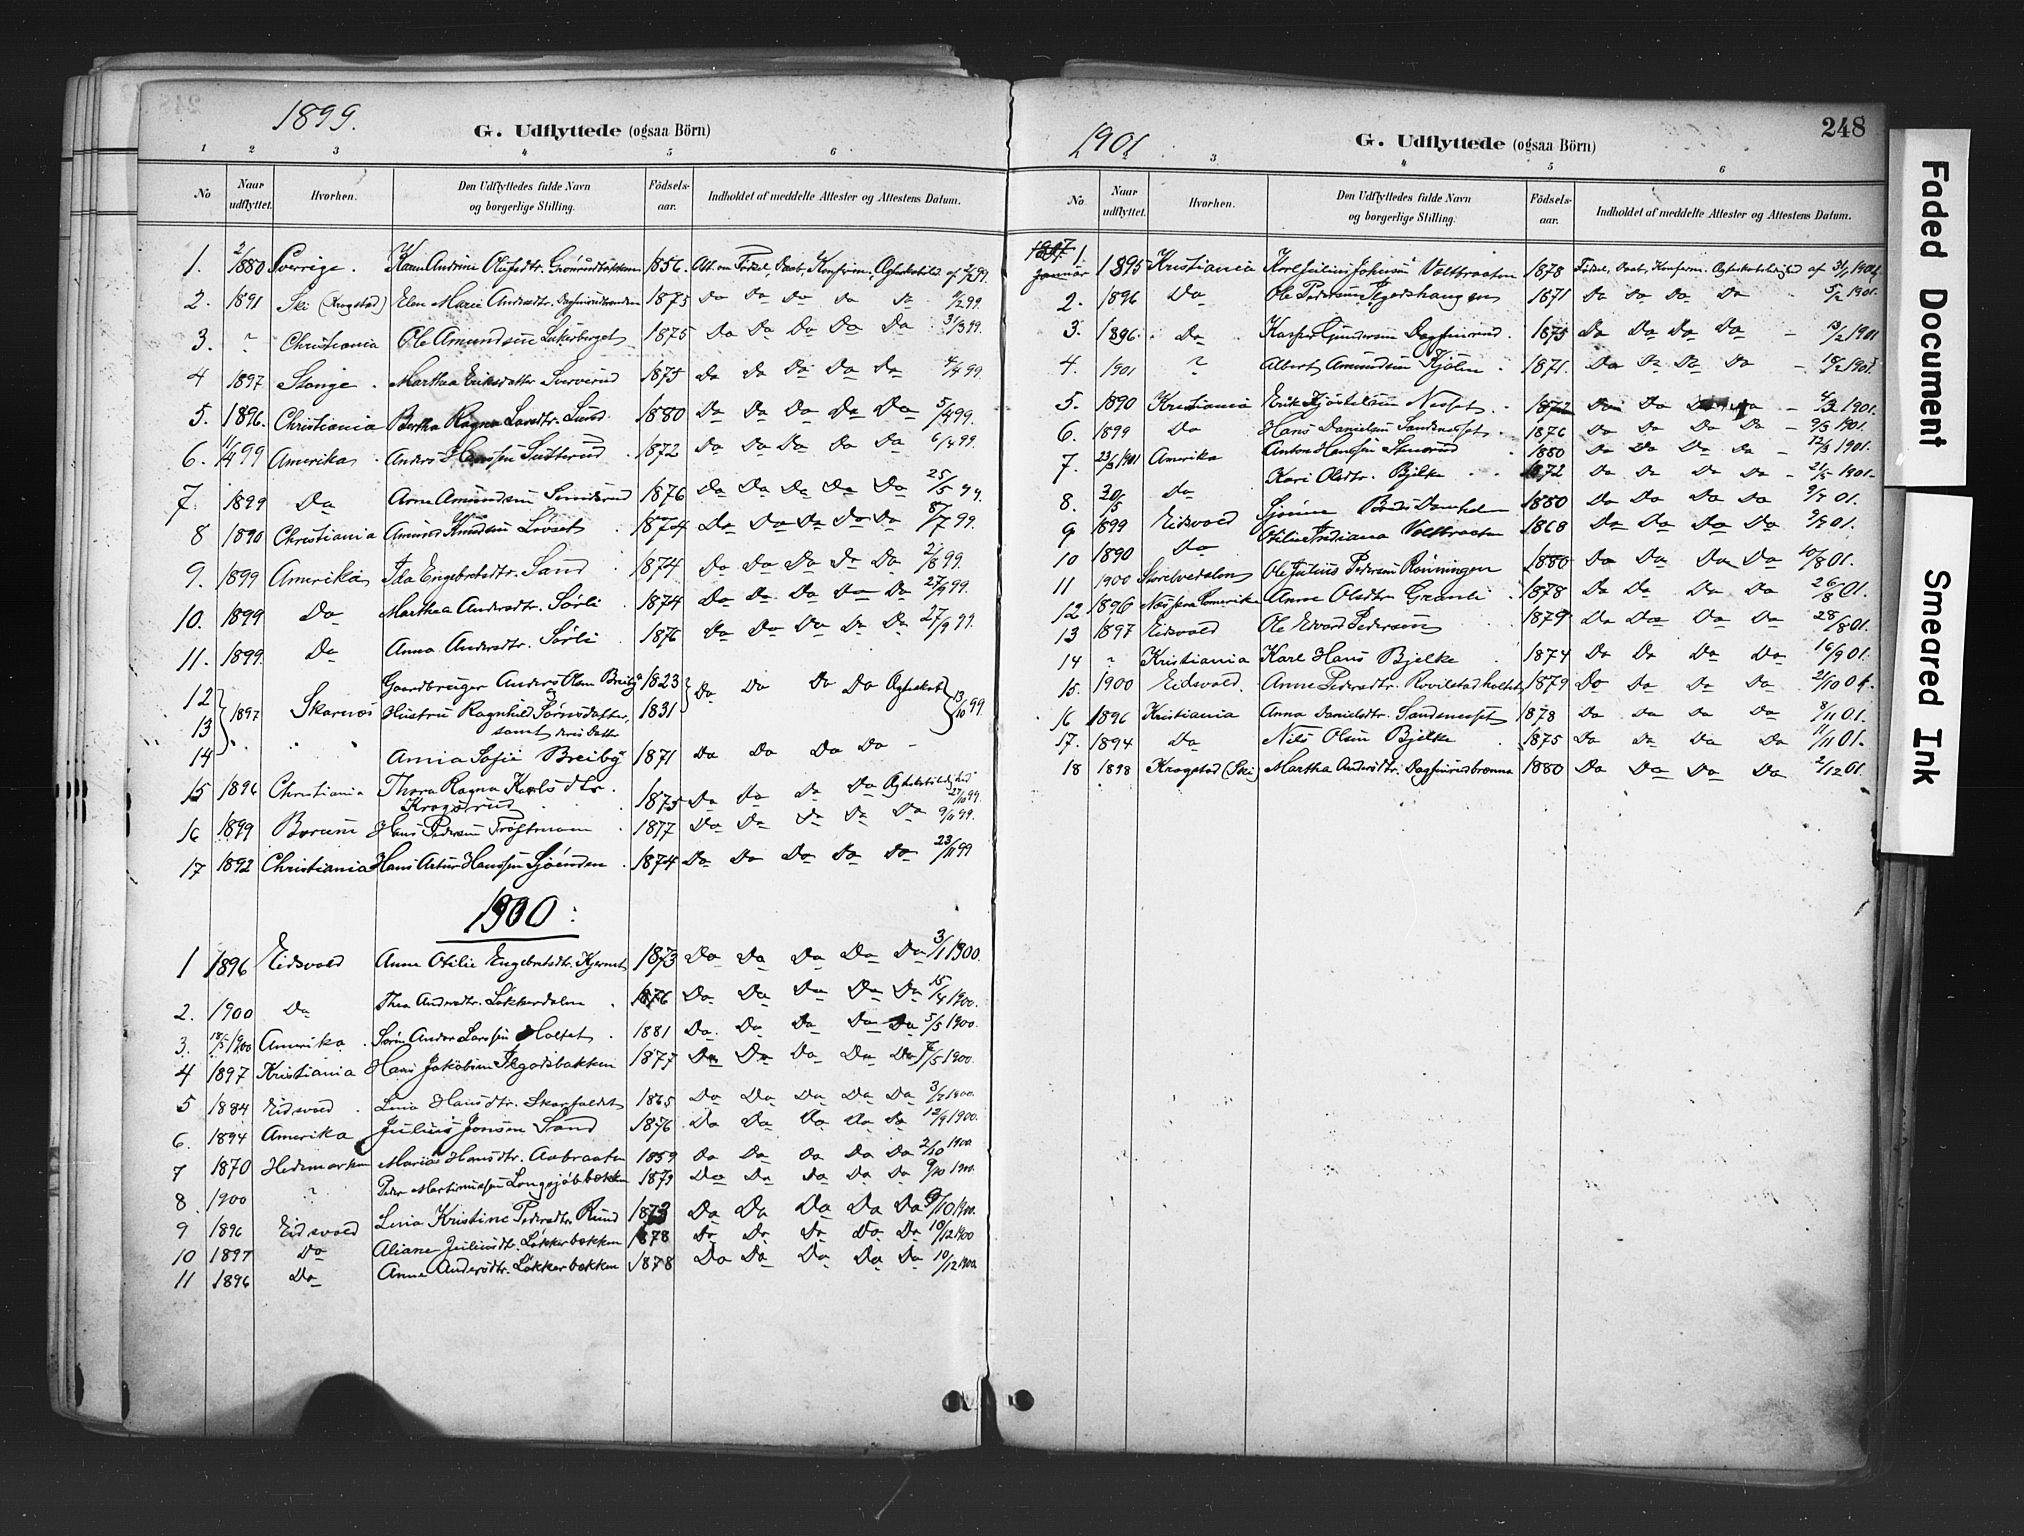 1899.
G. Udflyttede (ogsaa Börn)
1 2 3 4 5 6
No Naar udflyttet. Hvorhen. Den Udflyttedes fulde Navn og borgerlige Stilling. Fødsels-aar. Indholdet af meddelte Attester og Attestens Datum.
1. 2/1880 Sverrige. Karen Andrine Olufsdtr. 1856. Att. om Fødsel, Daab, Konfirm.
2. 1891 Ski (Krogstad) Elen Marie Andersdtr. 1875 Do Do Do Do Do 99.
3. ? Christiania Ole Amundsen 1875 Do Do Do Do Do 99.
4 1897 Stange. Marthea Eriksdatter 1875 Do Do Do Do Do 4/4 99.
5. 1896. Christiania Bertha Ragna Larsdtr. Lund 1880 Do Do Do Do Do 5/4 99.
6. 11/4 99 Amerika Anders Hanssen 1872 Do Do Do Do Do 6/4 99.
7. 1899 Do Arne Amundsen 1876 Do Do Do Do Do 25/5 99.
8 1890 Christiania Knudsen 1874 Do Do Do Do Do 99.
9. 1899 Amerika Ida Engebretsdtr. Sand 1874 Do Do Do Do Do 2/8 99.
10. 1899 Do Marthea Andersdtr. Sørli 1874 Do Do Do Do Do 27/9 99.
11. 1899. Do Anna Andersdtr. Sørli 1876 Do Do Do Do Do 27/9 99.
12 Gaardbruger Anders Olsen Breiby 1823
13 1897 Skarnæs Hustru Ragnhild 1831 Do Do Do Do 13/10 99
samt deres Datter
14 " " " Anna Sofie Breiby 1871 Do Do Do Do -
15 1896 Christiania Thora Ragna Karlsdtr. Krogsrud 1875 Do Do Do Do 27/10 99.
16 1899 Bærum Hans Pedersen 1877 Do Do Do Do Do 99.
17 1892 Christiania Hans Artur Hanssen Sjøenden. 1874 Do Do Do Do Do 23/11 99
1900:
1 1896 Eidsvold Anne Otilie Engebretsdtr. 1873 Do Do Do Do Do 3/1 1900.
2. 1900 Do Thea Andersdtr. Løkkerdalen. 1876 Do Do Do Do Do 15/4 1900.
3. 1900 Amerika. Larssen Holtet. 1881 Do Do Do Do Do 5/5 1900.
4 1897 Kristiania Hans Jakobsen 1877 Do Do Do Do Do 7/5 1900.
5 1884 Eidsvold. Lina Hansdtr. 1865 Do Do Do Do Do 3/7 1900.
6. 1894 Amerika Julius Jonsen Sand 1876. Do Do Do Do Do 12/9 1900.
7 1870 Hedemarken Hansdtr. Aabraaten 1859 Do Do Do Do Do 2/10 1900
8 1900 ? Peder Martinussen 1879 Do Do Do Do Do 9/10 1900.
9 1896 Eidsvold Lina Kristine Pedersdtr. Rund 1873 Do Do Do Do Do 9/10 1900.
10 1897 Do Aliane Juliusdtr. Løkkerbakken 1878 Do Do Do Do Do 10/12 1900
11 1896 Do Anne Andersdtr. Løkkerbakken 1878 Do Do Do Do Do 10/12 1900
1901
G. Udflyttede (ogsaa Börn)
248
3 4 5 6
No Naar udflyttet. Hvorhen. Den Udflyttedes fulde Navn og borgerlige Stilling. Fødsels-aar. Indholdet af meddelte Attester og Attestens Datum.
Januar 1. 1895 Kristiania Karl Julius Johnsen 1878 Fødsel, Daab, Konfirm. 31/1 1901.
2. 1896 Do Ole Pedersen 1871 Do Do Do Do - 5/2 1901.
3. 1896. Do Kasper Gundersen 1875 Do Do Do Do - 13/2 1901
4. 1901 ? Albert Amundsen Kjølen. 1871. Do Do Do Do - 18/2 1901.
5. 1890 Kristiania Erik Kjøstelsen Nesset. 1872 Do Do Do Do - 4/3 1901.
6. 1899 Do Hans Danielsen Sandnesset. 1876 Do Do Do Do - 9/3 1901.
7. 23/3 1901 Amerika Anton Hanssen Stensrud 1880 Do Do Do Do - 12/3 1901.
8. 30/5 Do Kari Olsdtr. Bjelke 1872 Do Do Do Do - 21/5 1901.
9 1899 Eidsvold 1880 Do Do Do Do 01.
10 1890 Do Otilie Indiana 1868 Do Do Do Do 01.
11 1900 Ole Julius Pedersen Rønningen 1880 Do Do Do Do 10/8 01.
12 1896 Anne Olsdtr. Granli 1878 Do Do Do Do 26/8 01.
13 1897 Eidsvold Ole Edvard Pedersen 1879 Do Do Do Do 28/8 01.
14 ? Kristiania Karl Hans Bjelke 1874 Do Do Do Do 16/9 01.
15. 1900 Eidsvold. Anne Pedersdtr. 1879 Do Do Do Do 2/10 01.
16 1896 Kristiania Anna Danielsdtr. Sandnesset 1878 Do Do Do Do 8/11 01.
17. 1894 Do Nils Olsen Bjelke 1875 Do Do Do Do 11/11 01.
18 1898 Krogstad (Ski) Martha Andersdtr. 1880 Do Do Do Do 2/12 01.
Faded Document
Smeared Ink